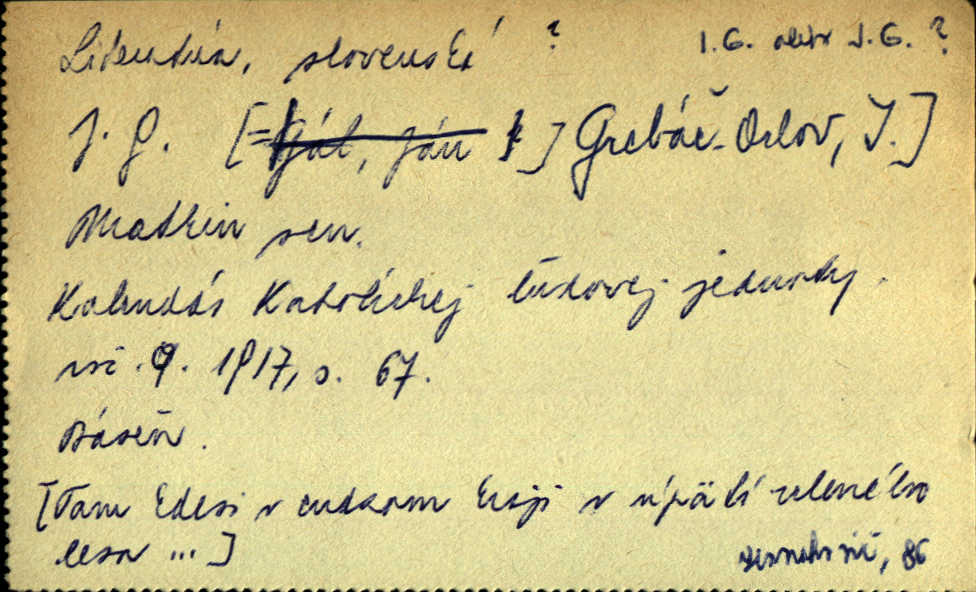 Literatúra, slovenská ?
I. G. alebo J. G. ?
J. G. [= Gál, Ján ] Grebáč-Orlov, I.]
Matkin sen.
Kalendár Katolíckej ľudovej jednoty.
roč. 9. 1917, s. 67.
Báseň.
[Tam kdesi v cudzom kraji v úpätí zeleného
lesa ...]
86